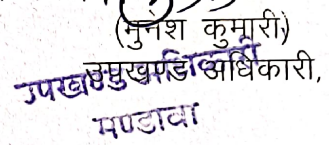 (मुनेश कुमारी)
उपखण्ड अधिकारी,
उपखण्ड अधिकारी
मण्डावा